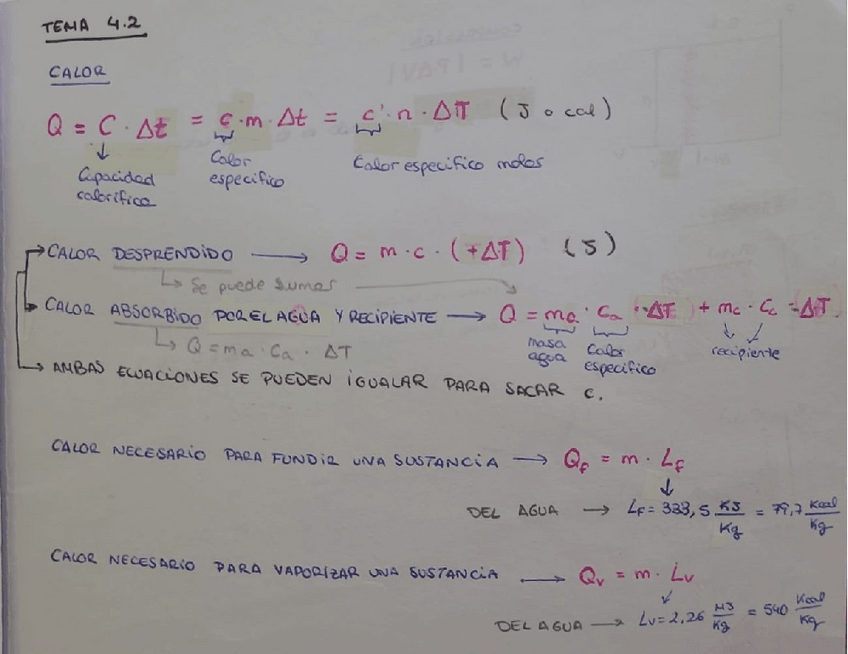 TEMA 4.2
CALOR
Q = C · Δt = c · m · Δt = c' · n · ΔT (J o cal)
Capacidad calorífica
Calor especifico
Calor especifico molar
CALOR DESPRENDIDO → Q = m · c · (+ΔT) (J)
↳ Se puede sumar
CALOR ABSORBIDO POR EL AGUA Y RECIPIENTE → Q = ma · Ca · ΔT + mc · Cc · ΔT
masa agua
Calor especifico
recipiente
↳ Q = ma · Ca · ΔT
→ AMBAS ECUACIONES SE PUEDEN IGUALAR PARA SACAR c.
CALOR NECESARIO PARA FUNDIR UNA SUSTANCIA → Qf = m · Lf
DEL AGUA → LF = 333,5 KJ/Kg = 79,7 Kcal/Kg
CALOR NECESARIO PARA VAPORIZAR UNA SUSTANCIA → Qv = m · Lv
DEL AGUA → Lv = 2,26 MJ/Kg = 540 Kcal/Kg